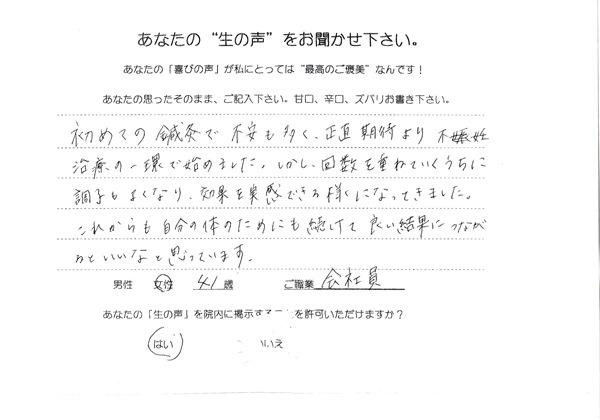 あなたの“生の声”をお聞かせ下さい。
あなたの「喜びの声」が私にとっては“最高のご褒美”なんです！
あなたの思ったそのまま、ご記入下さい。甘口、辛口、ズバリお書き下さい。
初めての鍼灸で不安も多く、正直期待より不妊
治療の一環で始めました。しかし、回数を重ねていくうちに
調子もよくなり、効果を実感できる様になってきました。
これからも自分の体のためにも続けて良い結果につながが
るといいなと思っています。
男性 女性 41 歳 ご職業 会社員
あなたの「生の声」を院内に掲示する を許可いただけますか？
はい いいえ